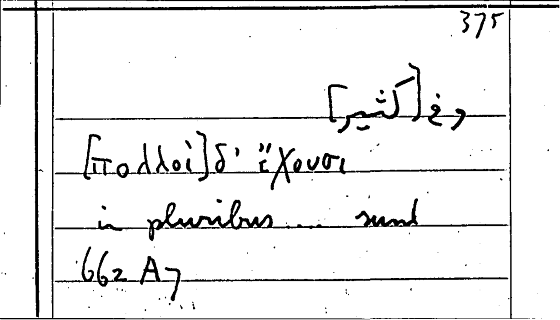 375
وفي [كثير]
[πολλοὶ] δ' ἔχουσι
in pluribus ... sunt
662 A7